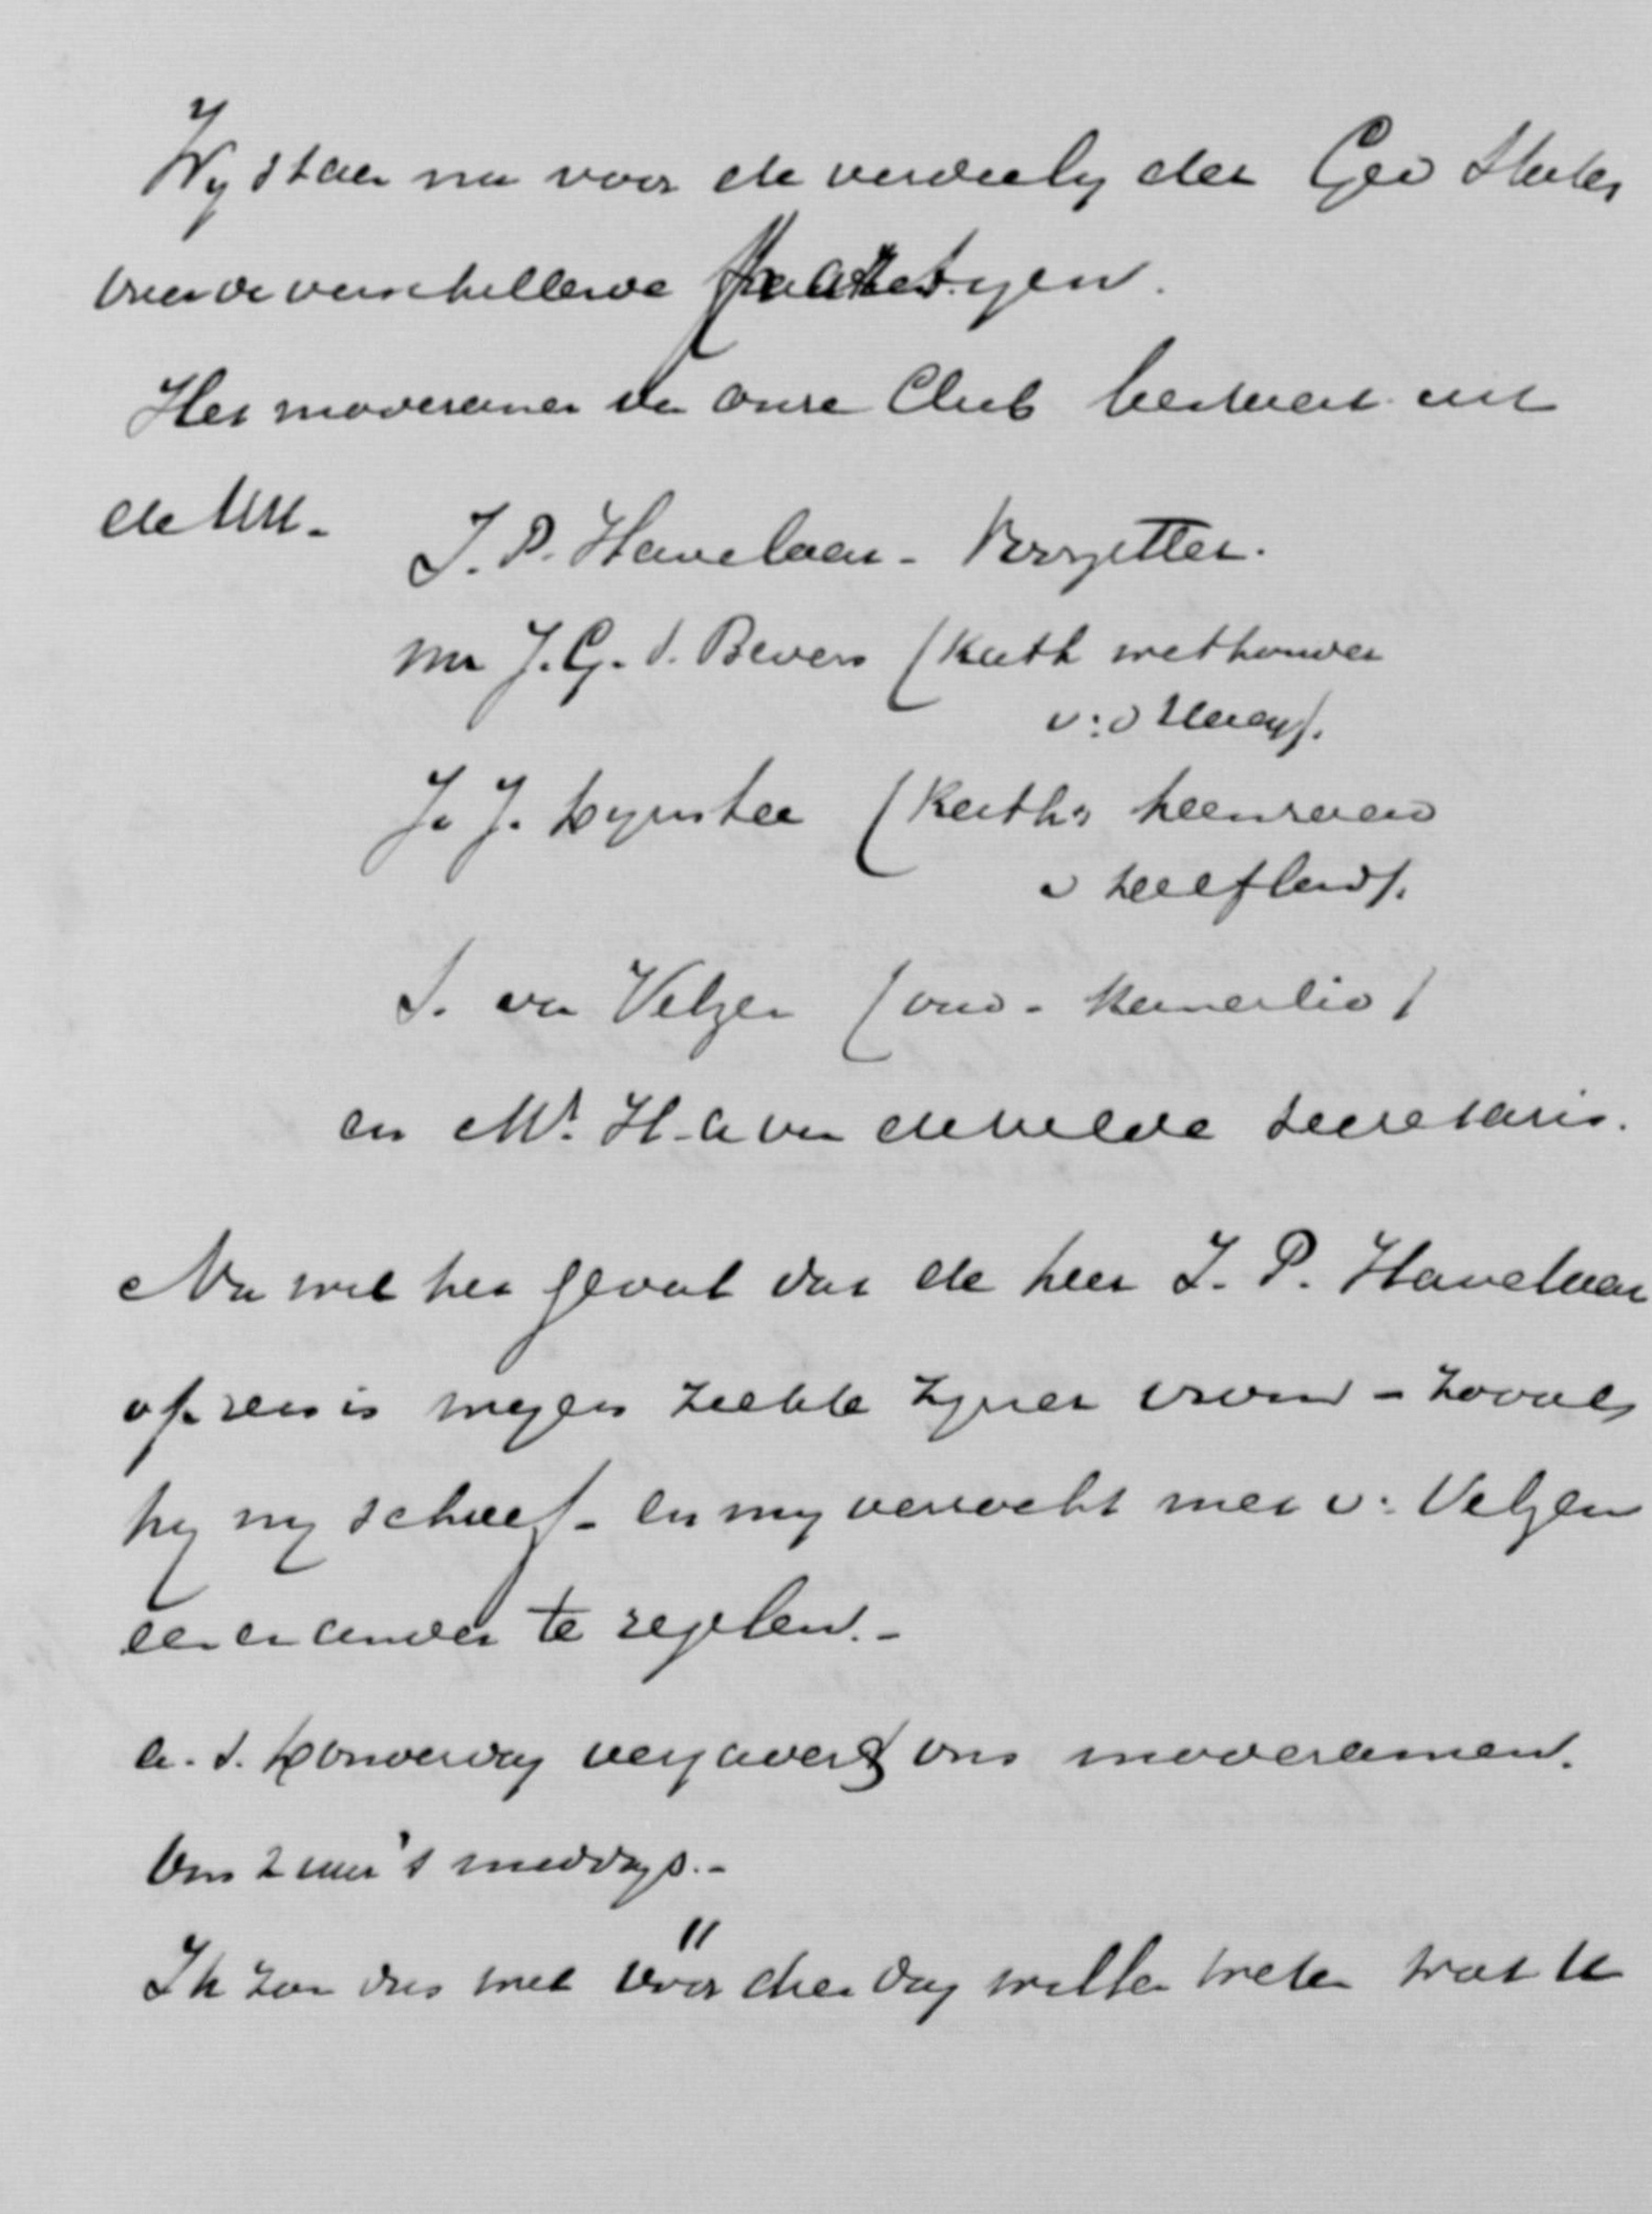 Wy staan nu voor de verdeeling der Ged Staten
over de verschillende fractiën.
Het moderamen der onze Club bestaat uit
de HH.
J. P. Havelaar - Voorzitter.
Mr J. G. S. Bevers (Kath wethouder
v: d Haag).
J. J. (Kath: heemraad
v Delfland).
S. van Velzen (oud-Kamerlid)
en Mr. H. A van de Velde Secretaris.
Nu wil het geval dat de heer J. P. Havelaar
op reis is wegens ziekte zyner vrouw - zooals
hy my schreef - en my verzocht met v: Velzen
een en ander te regelen. -
a. s. Donderdag vergadert ons moderamen.
Om 2 uur 's middags. -
Ik zou dus wel vóór dien dag willen weten wat U